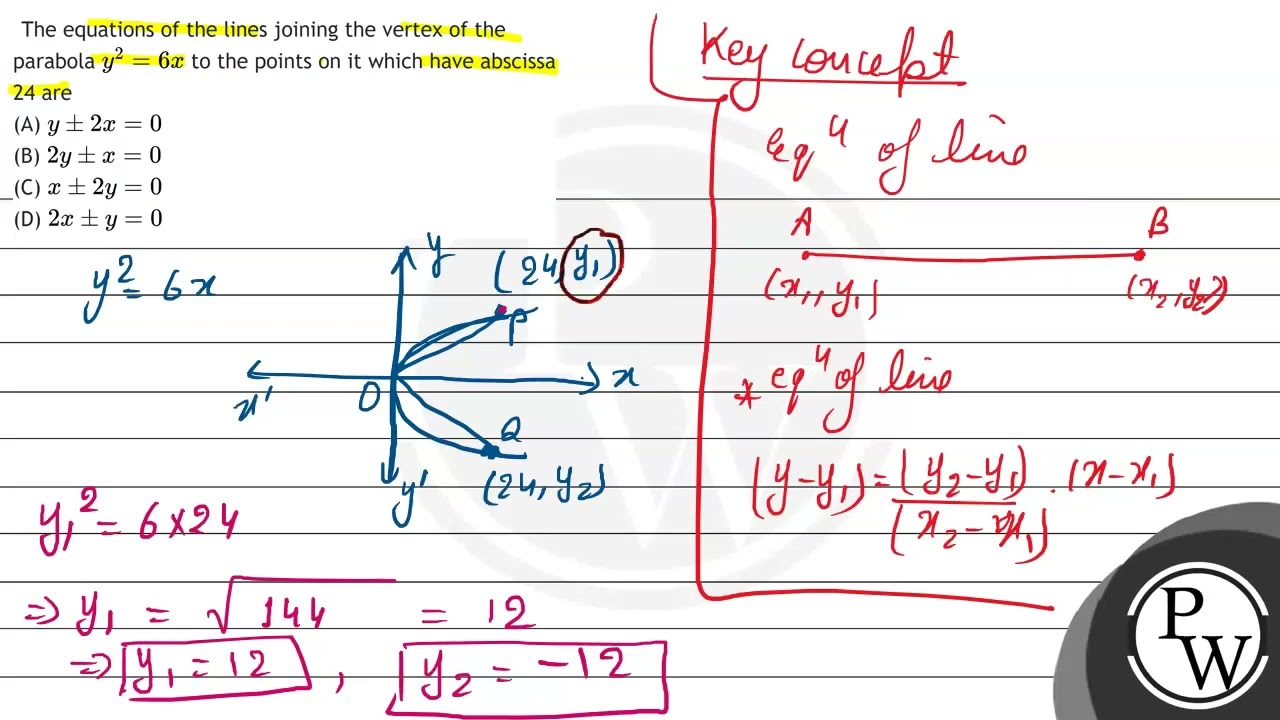 The equations of the lines joining the vertex of the
parabola y² = 6x to the points on it which have abscissa
24 are
(A) y ± 2x = 0
(B) 2y ± x = 0
(C) x ± 2y = 0
(D) 2x ± y = 0
y² = 6x
y
(24, y₁)
P
x
x'
O
Q
y'
(24, y₂)
y₁² = 6×24
⇒ y₁ = √144 = 12
⇒ y₁ = 12 , y₂ = -12
Key concept
eqⁿ of line
A B
(x₁, y₁) (x₂, y₂)
* eqⁿ of line
(y-y₁) = (y₂-y₁)/(x₂-x₁) . (x-x₁)
PW
P
W